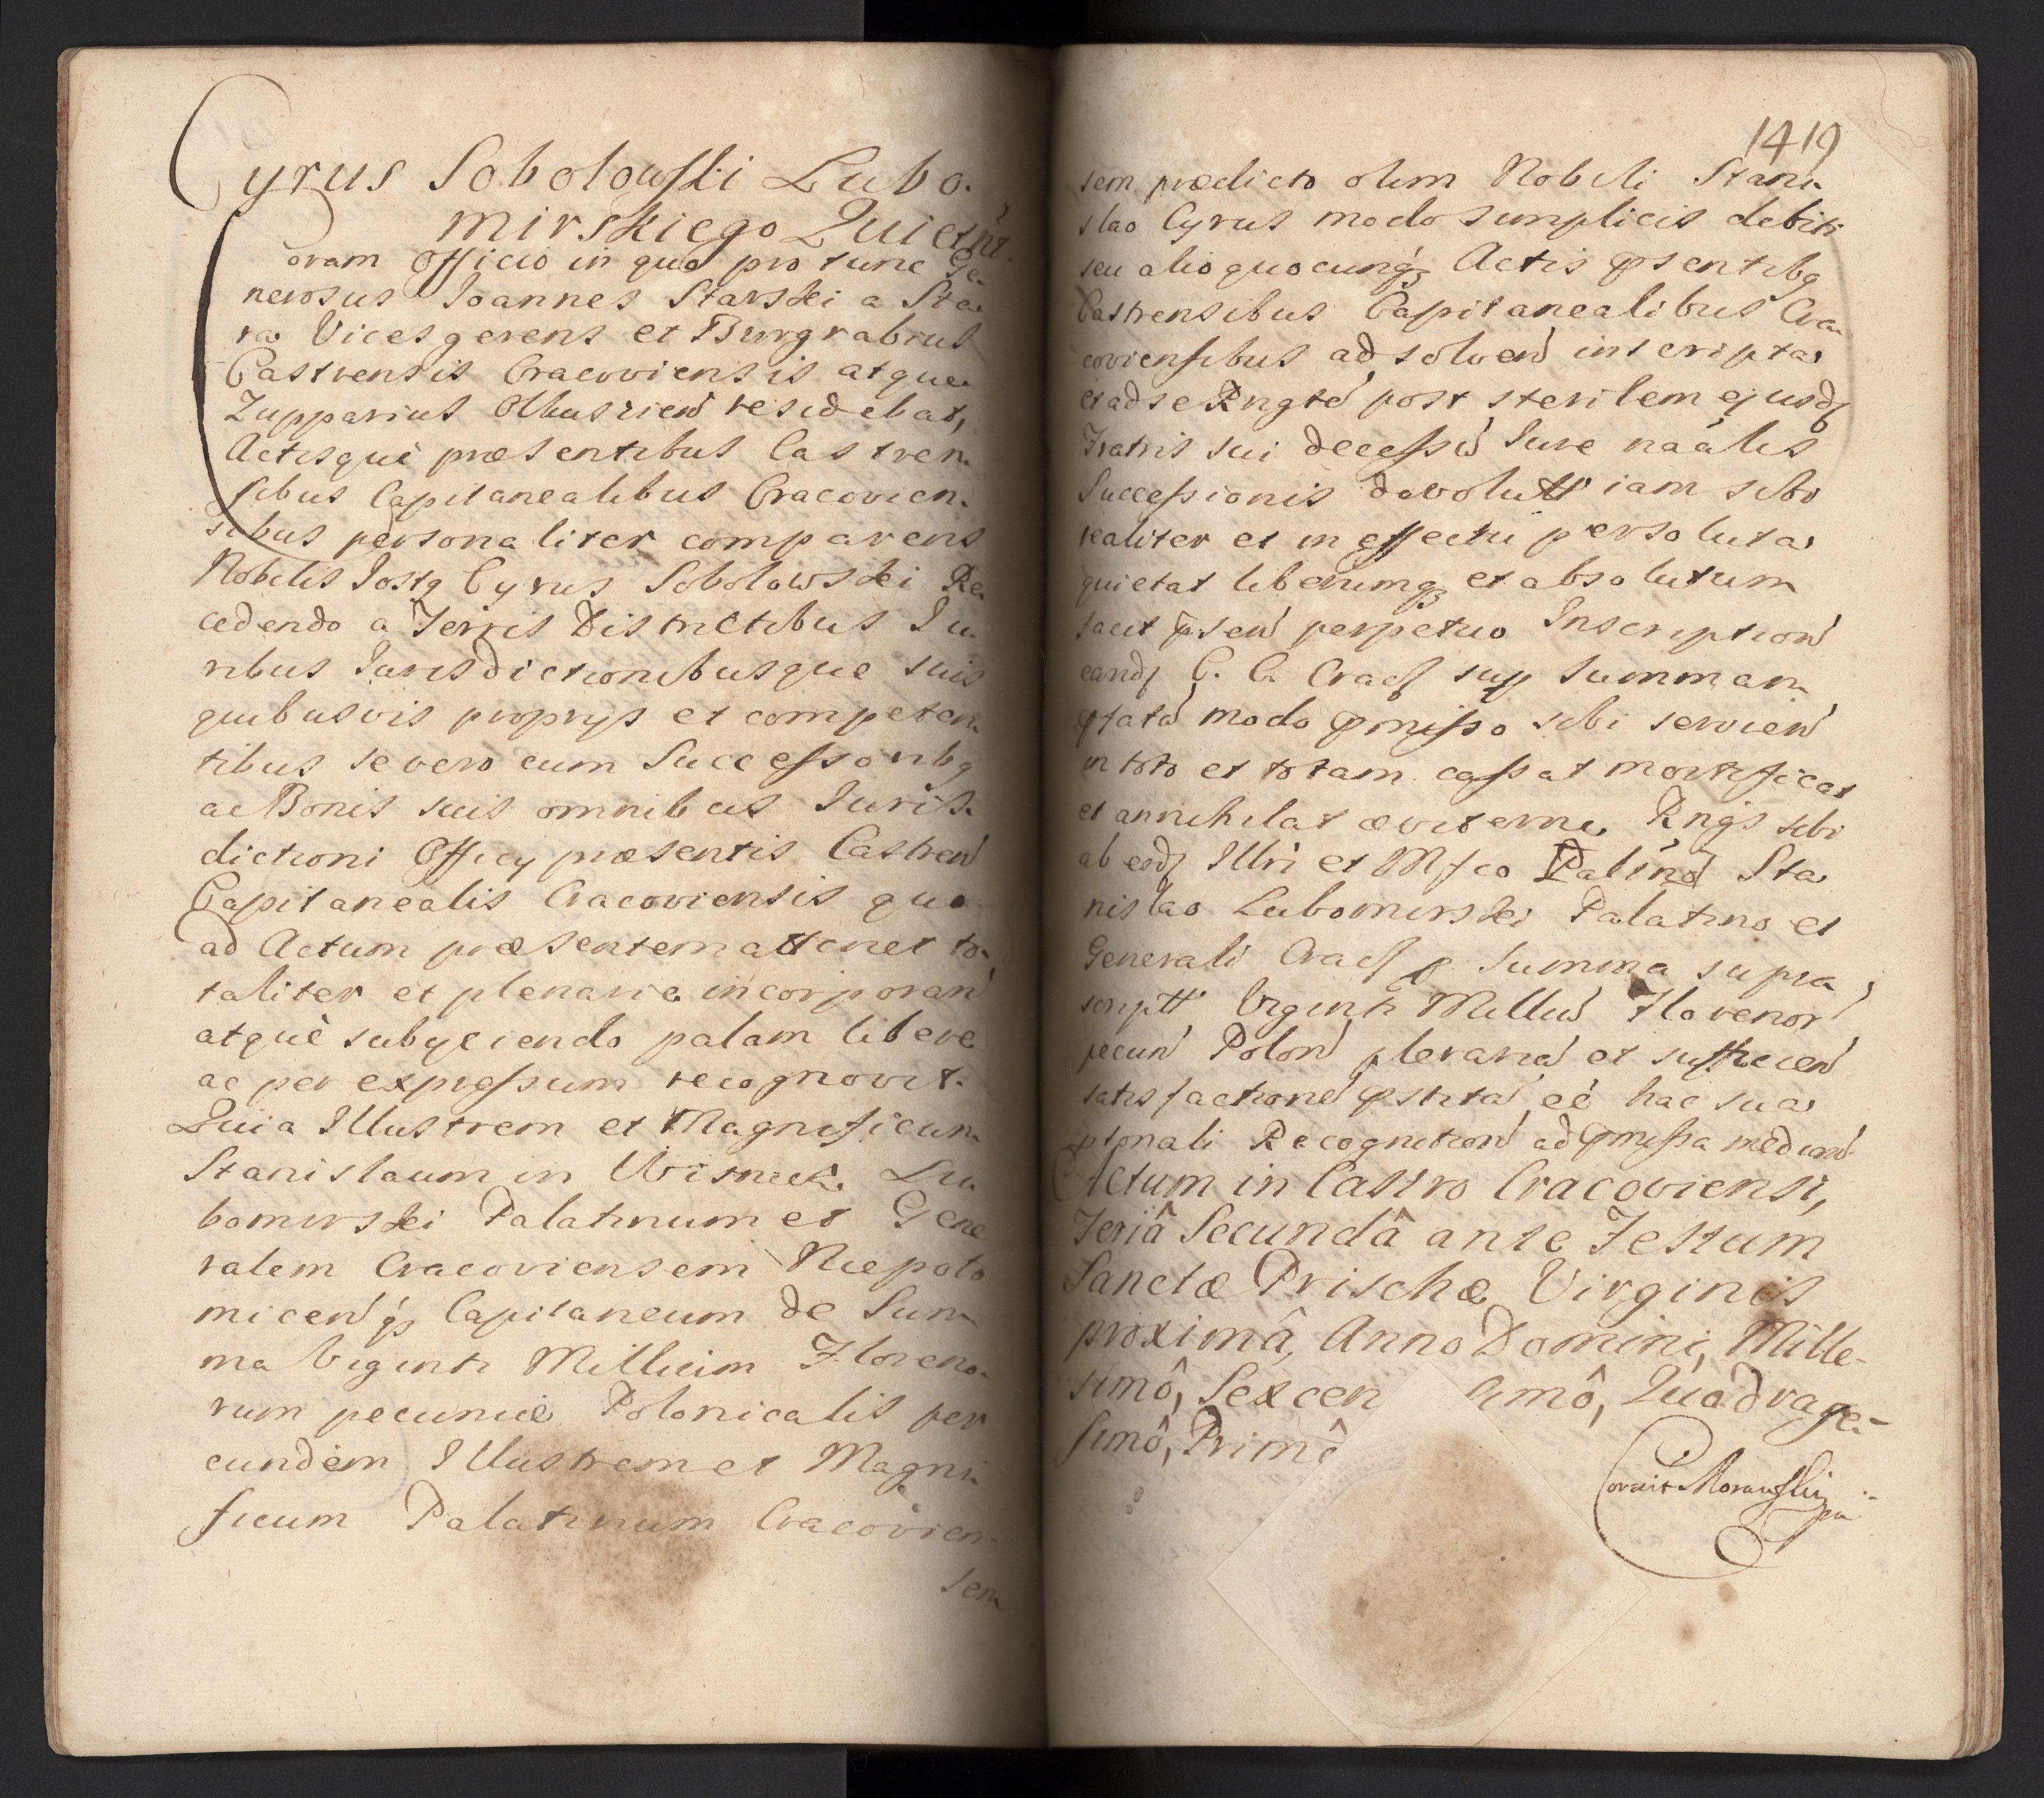 Cyrus Sobolowski Lubo-
mirskiego Quietat
Coram Officio in quo pro tunc Ge-
nerosus Joannes Starski a Sta-
ra Vicesgerens et Burgrabius
Castrensis Cracoviensis atque
Zupparius Olkuszien̄ residebat,
Actisque præsentibus Castren-
sibus Capitanealibus Cracovien-
sibus personaliter comparens
Nobilis Jostq Cyrus Sobolowski Re-
cedendo a Terris Districtibus Iu-
ribus Jurisdictionibusque suis
quibusvis proprijs et competen-
tibus se vero cum Successoribq
ac Bonis suis omnibus Juris-
dictioni Officy præsentis Castren̄
Capitanealis Cracoviensis quo
ad Actum præsentem attinet to-
taliter et plenarie incorporan̄
atquè subyciendo palam libere
ac per expressum recognovit.
Quia Illustrem et Magnificum
Stanislaum in Wisnicz Lu-
bomirski Palatinum et Gene
ralem Cracoviensem Niepolo
micen̄ qȝ Capitaneum de Sum-
ma Viginti Millium Floreno-
rum pecuniæ Polonicalis per
eundem Illustrem et Magni
ficum Palatinum Cracovien-
sem
1419
sem prædicto olim Nobili Stani-
slao Cyrus modo simplicis debiti
seu alio quocunqȝ Actis p̄sentibq
Castrensibus Capitanealibus Cra-
coviensibus ad solven̄ inscripta
et ad se Rngtē post sterilem ejusdȝ
Fratris sui decessū Iure naālis
Successionis devolutt iam sibi
realiter et in effectu persoluta
quietat liberumqȝ et absolutum
facit p̄sen̄ perpetuo Inscription̄
eandȝ C. C. Cracȝ sup Summam
p̄fatā modo p̄misso sibi servien̄
in toto et totam cassat mortificat
et annihilat æviterne. Rngs sibi
ab eodȝ Illri et Mfco Palinō Sta
nislao Lubomirski Palatino et
Generali Cracȝ p Summa supra
scriptt Viginti Milliū Florenor̄
pecun̄ Polon̄ plenariā et sufficien̄
satisfactionē p̄stitā eē hac sua
p̄sonali Recognition̄ ad p̄missa median̄.
Actum in Castro Cracoviensi,
Feriâ Secundâ ante Festum
Sanctæ Prischæ Virginis
proximâ, Anno Domini, Mille-
simô, Sexcen imô, Quadrage-
simô, Primô
Corrix Morawski